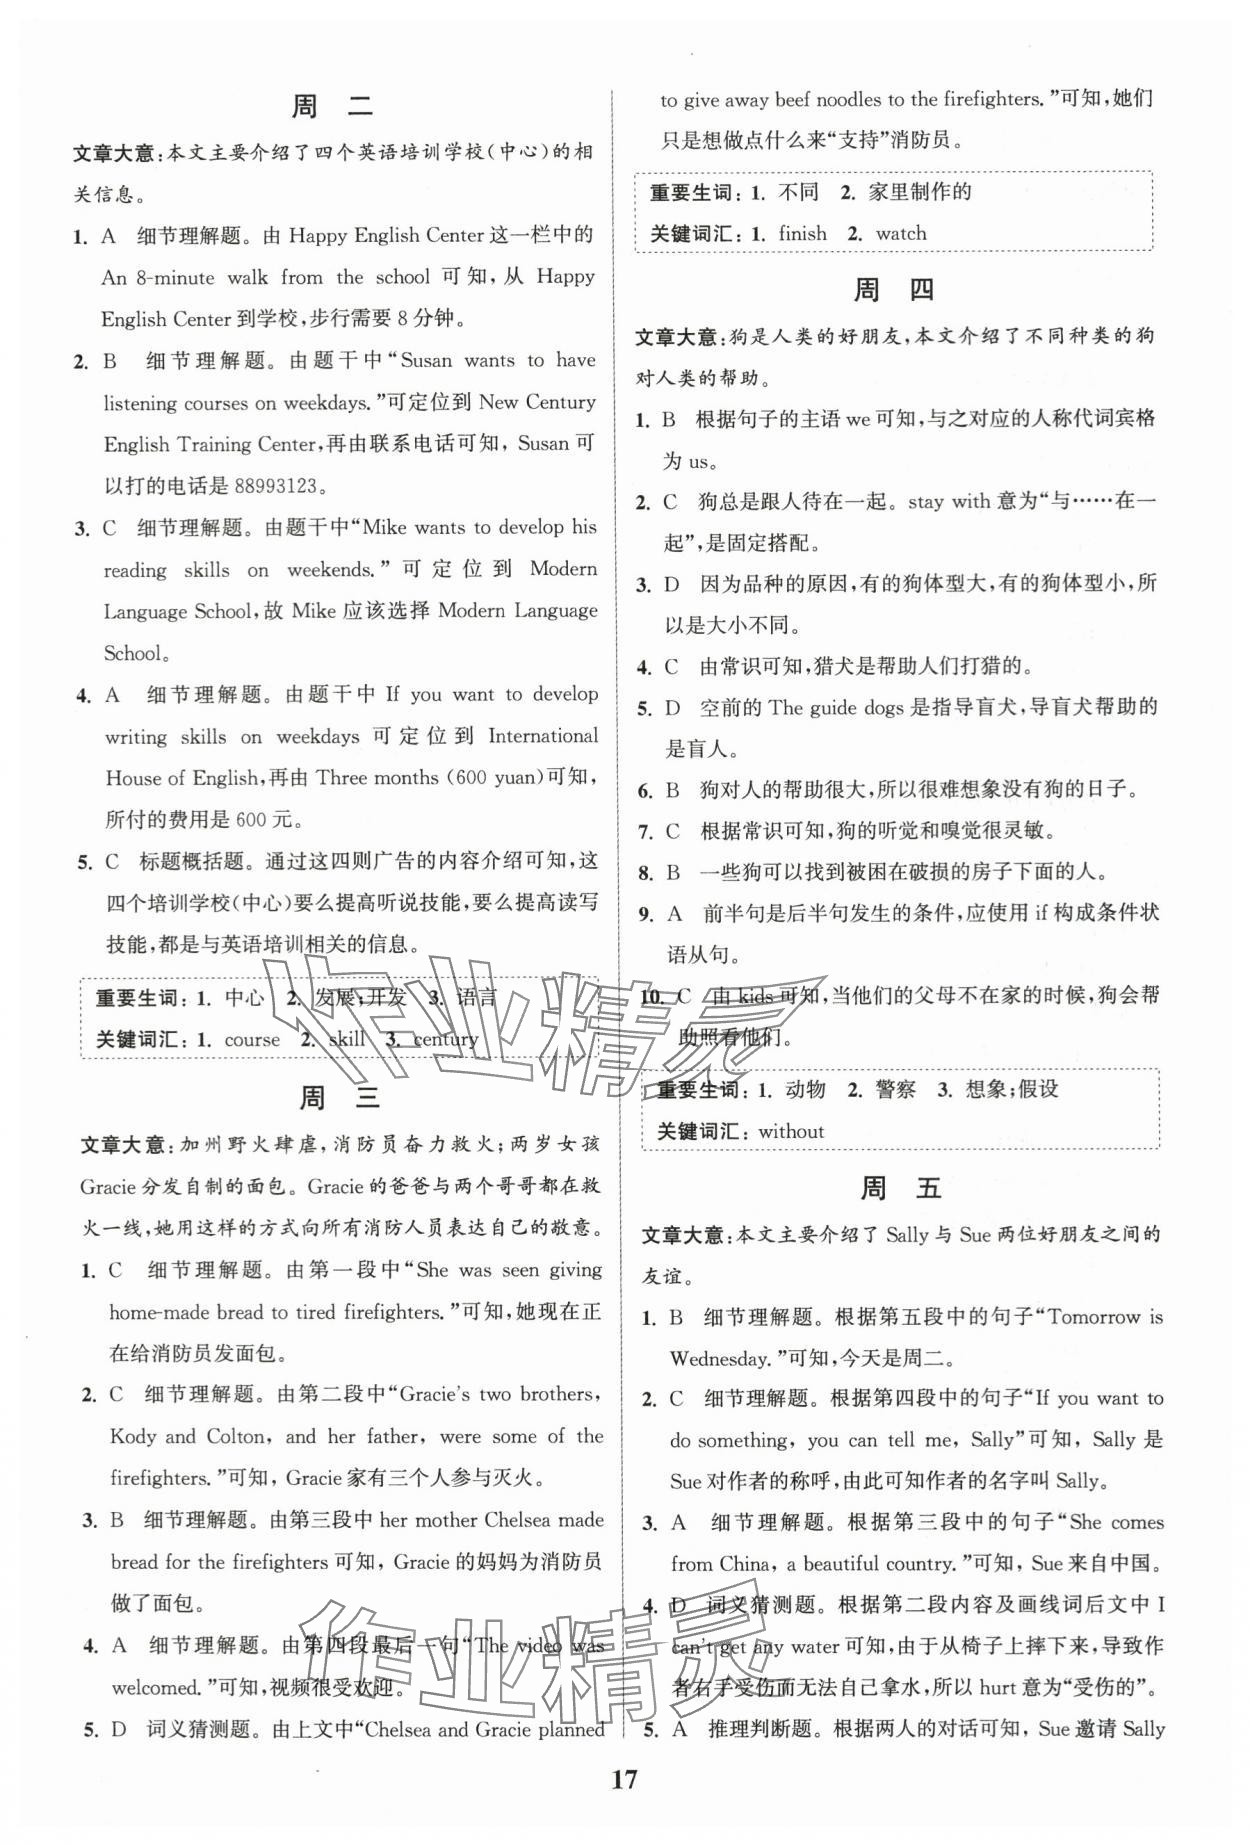 周 二
文章大意:本文主要介绍了四个英语培训学校(中心)的相
关信息。
1. A 细节理解题。由 Happy English Center 这一栏中的
An 8-minute walk from the school 可知,从 Happy
English Center 到学校,步行需要 8 分钟。
2. B 细节理解题。由题干中“Susan wants to have
listening courses on weekdays.”可定位到 New Century
English Training Center,再由联系电话可知, Susan 可
以打的电话是 88993123。
3. C 细节理解题。由题干中“Mike wants to develop his
reading skills on weekends.”可定位到 Modern
Language School,故 Mike 应该选择 Modern Language
School。
4. A 细节理解题。由题干中 If you want to develop
writing skills on weekdays 可定位到 International
House of English,再由 Three months (600 yuan)可知,
所付的费用是 600 元。
5. C 标题概括题。通过这四则广告的内容介绍可知,这
四个培训学校(中心)要么提高听说技能,要么提高读写
技能,都是与英语培训相关的信息。
重要生词: 1. 中心 2. 发展;开发 3. 语言
关键词汇: 1. course 2. skill 3. century
周 三
文章大意:加州野火肆虐,消防员奋力救火;两岁女孩
Gracie 分发自制的面包。Gracie 的爸爸与两个哥哥都在救
火一线,她用这样的方式向所有消防人员表达自己的敬意。
1. C 细节理解题。由第一段中“She was seen giving
home-made bread to tired firefighters.”可知,她现在正
在给消防员发面包。
2. C 细节理解题。由第二段中“Gracie's two brothers,
Kody and Colton, and her father, were some of the
firefighters.”可知, Gracie 家有三个人参与灭火。
3. B 细节理解题。由第三段中 her mother Chelsea made
bread for the firefighters 可知, Gracie 的妈妈为消防员
做了面包。
4. A 细节理解题。由第四段最后一句“The video was
welcomed.”可知,视频很受欢迎。
5. D 词义猜测题。由上文中“Chelsea and Gracie planned
to give away beef noodles to the firefighters.”可知,她们
只是想做点什么来“支持”消防员。
重要生词: 1. 不同 2. 家里制作的
关键词汇: 1. finish 2. watch
周 四
文章大意:狗是人类的好朋友,本文介绍了不同种类的狗
对人类的帮助。
1. B 根据句子的主语 we 可知,与之对应的人称代词宾格
为 us。
2. C 狗总是跟人待在一起。stay with 意为“与……在一
起”,是固定搭配。
3. D 因为品种的原因,有的狗体型大,有的狗体型小,所
以是大小不同。
4. C 由常识可知,猎犬是帮助人们打猎的。
5. D 空前的 The guide dogs 是指导盲犬,导盲犬帮助的
是盲人。
6. B 狗对人的帮助很大,所以很难想象没有狗的日子。
7. C 根据常识可知,狗的听觉和嗅觉很灵敏。
8. B 一些狗可以找到被困在破损的房子下面的人。
9. A 前半句是后半句发生的条件,应使用 if 构成条件状
语从句。
10. C 由 kids 可知,当他们的父母不在家的时候,狗会帮
助照看他们。
重要生词: 1. 动物 2. 警察 3. 想象;假设
关键词汇: without
周 五
文章大意:本文主要介绍了 Sally 与 Sue 两位好朋友之间的
友谊。
1. B 细节理解题。根据第五段中的句子“Tomorrow is
Wednesday.”可知,今天是周二。
2. C 细节理解题。根据第四段中的句子“If you want to
do something, you can tell me, Sally”可知, Sally 是
Sue 对作者的称呼,由此可知作者的名字叫 Sally。
3. A 细节理解题。根据第三段中的句子“She comes
from China, a beautiful country.”可知, Sue 来自中国。
4. D 词义猜测题。根据第二段内容及画线词后文中 I
can't get any water 可知,由于从椅子上摔下来,导致作
者右手受伤而无法自己拿水,所以 hurt 意为“受伤的”。
5. A 推理判断题。根据两人的对话可知, Sue 邀请 Sally
17
作业精灵
作业精灵